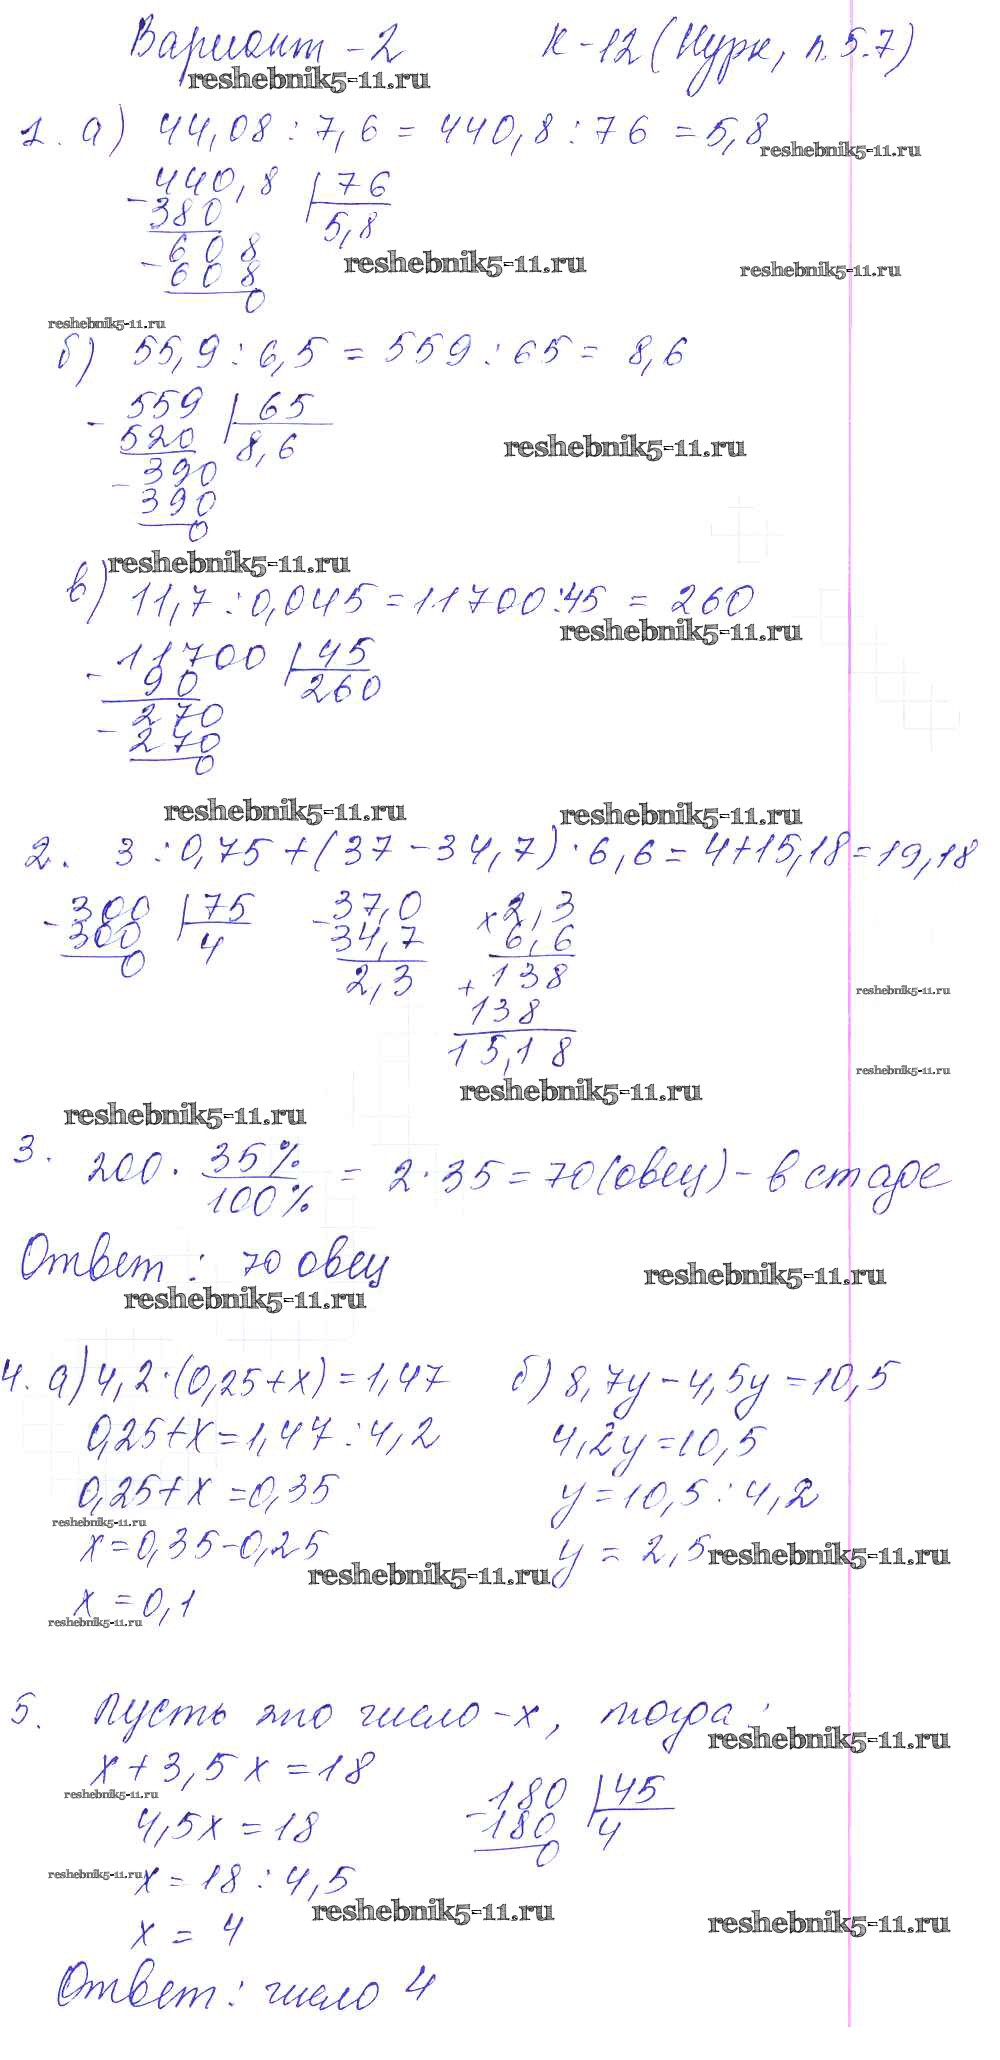 Вариант - 2 К - 12 (Нурк, п. 5.7)
reshebnik5-11.ru
1. а) 44,08 : 7,6 = 440,8 : 76 = 5,8
reshebnik5-11.ru
440,8 76
- 380 5,8
608
- 608
0
reshebnik5-11.ru reshebnik5-11.ru
reshebnik5-11.ru
б) 55,9 : 6,5 = 559 : 65 = 8,6
- 559 65
520 8,6
reshebnik5-11.ru
- 390
390
0
reshebnik5-11.ru
в) 11,7 : 0,045 = 11700 : 45 = 260
reshebnik5-11.ru
- 11700 45
90 260
- 270
270
0
reshebnik5-11.ru reshebnik5-11.ru
2. 3 : 0,75 + (37 - 34,7) · 6,6 = 4 + 15,18 = 19,18
- 300 75 - 37,0 × 2,3
300 4 34,7 6,6
0 2,3 + 138
reshebnik5-11.ru
138
15,18
reshebnik5-11.ru
reshebnik5-11.ru
reshebnik5-11.ru
3. 200 · 35% / 100% = 2 · 35 = 70 (овец) - в стаде
Ответ : 70 овец
reshebnik5-11.ru
reshebnik5-11.ru
4. а) 4,2 · (0,25 + x) = 1,47 б) 8,7y - 4,5y = 10,5
0,25 + x = 1,47 : 4,2 4,2y = 10,5
0,25 + x = 0,35 y = 10,5 : 4,2
reshebnik5-11.ru
x = 0,35 - 0,25 y = 2,5
reshebnik5-11.ru
reshebnik5-11.ru
x = 0,1
reshebnik5-11.ru
5. Пусть это число - x, тогда :
reshebnik5-11.ru
x + 3,5x = 18
reshebnik5-11.ru
- 180 45
4,5x = 18 180 4
0
reshebnik5-11.ru
x = 18 : 4,5
reshebnik5-11.ru
reshebnik5-11.ru
x = 4
Ответ : число 4